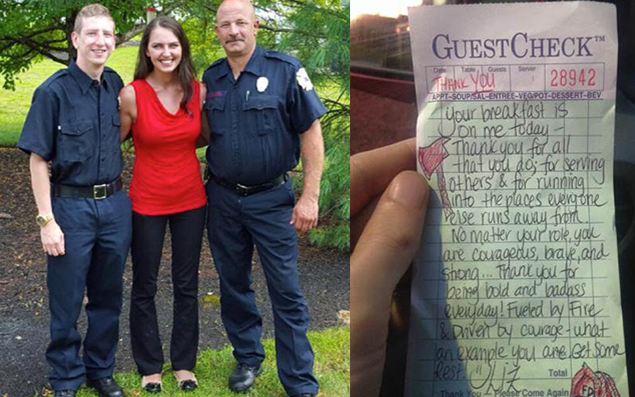 GUESTCHECK™
Date Table Guests Server
THANK YOU 28942
APPT-SOUP/SAL-ENTREE-VEG/POT-DESSERT-BEV
Your breakfast is
on me today -
Thank you for all
that you do; for serving
others & for running
into the places everyone
else runs away from.
No matter your role, you
are courageous, brave, and
strong... Thank you for
being bold and badass
everyday! Fueled by Fire
& Driven by courage - what
an example you are. Get some
Rest! Liz
Total
Thank You Please Come Again FD